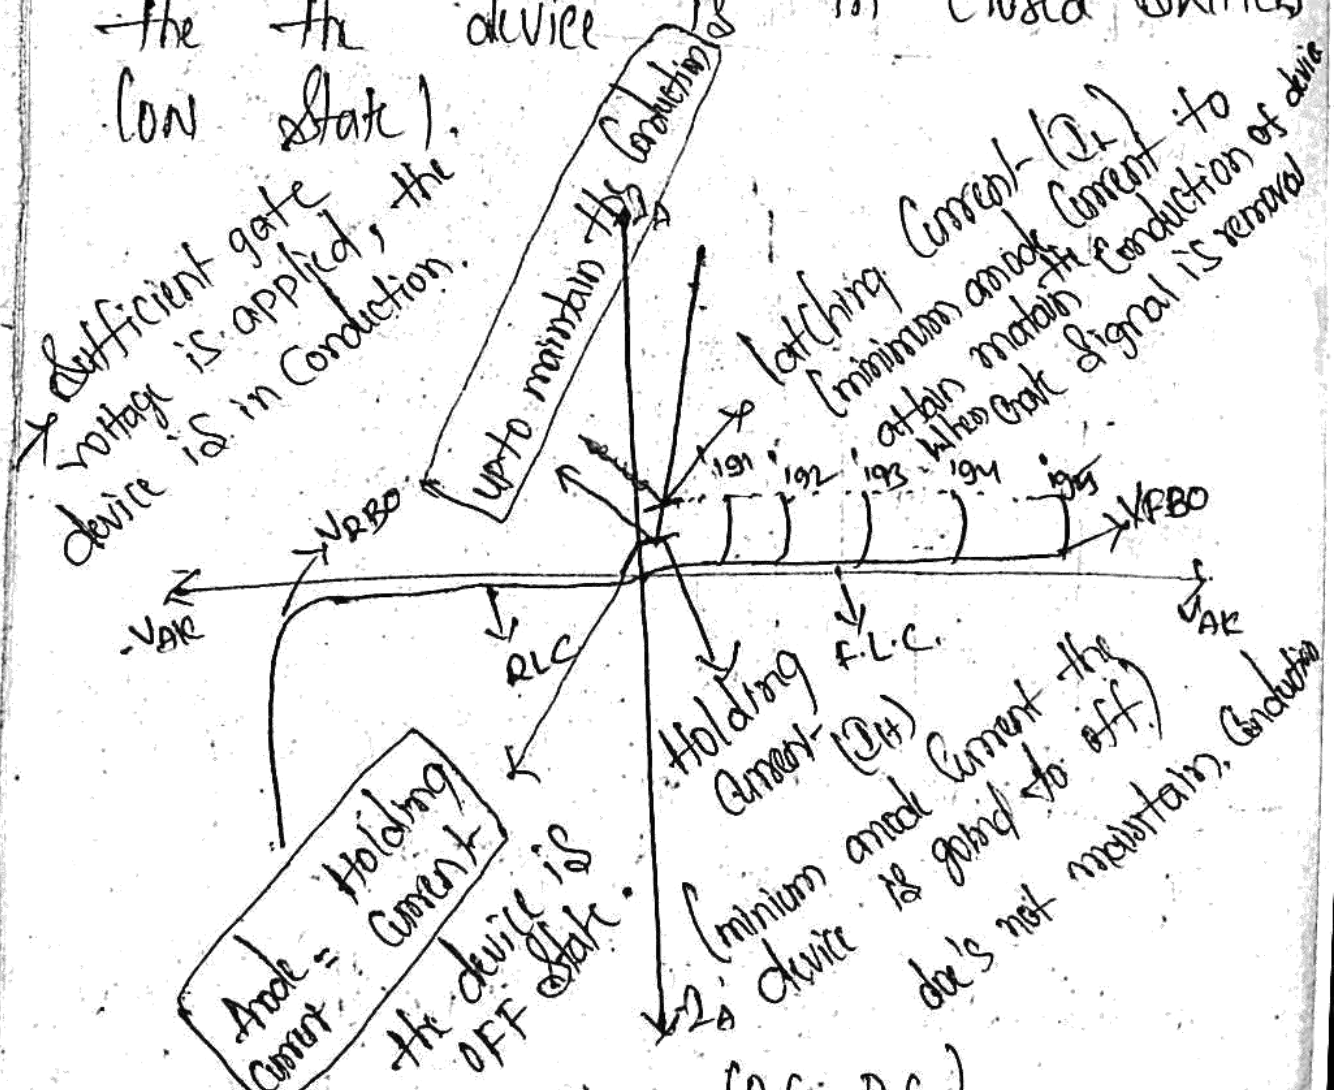 the th device is in closed
(ON State).
Sufficient gate
voltage is applied, the
device is in conduction.
upto maintain the conduction
I_A
latching Current (I_L)
(minimum anode current to
attain matain the conduction of device
when Gate Signal is removal
ig1 ig2 ig3 ig4 ig5
V_RBO
V_FBO
-V_AK
V_AK
RLC
F.L.C.
Holding
Current (I_H)
(minium anode current the
device is going to off.)
doe's not maintain conduction
Anode = Holding
Current Current
the device is
OFF State.
-I_A